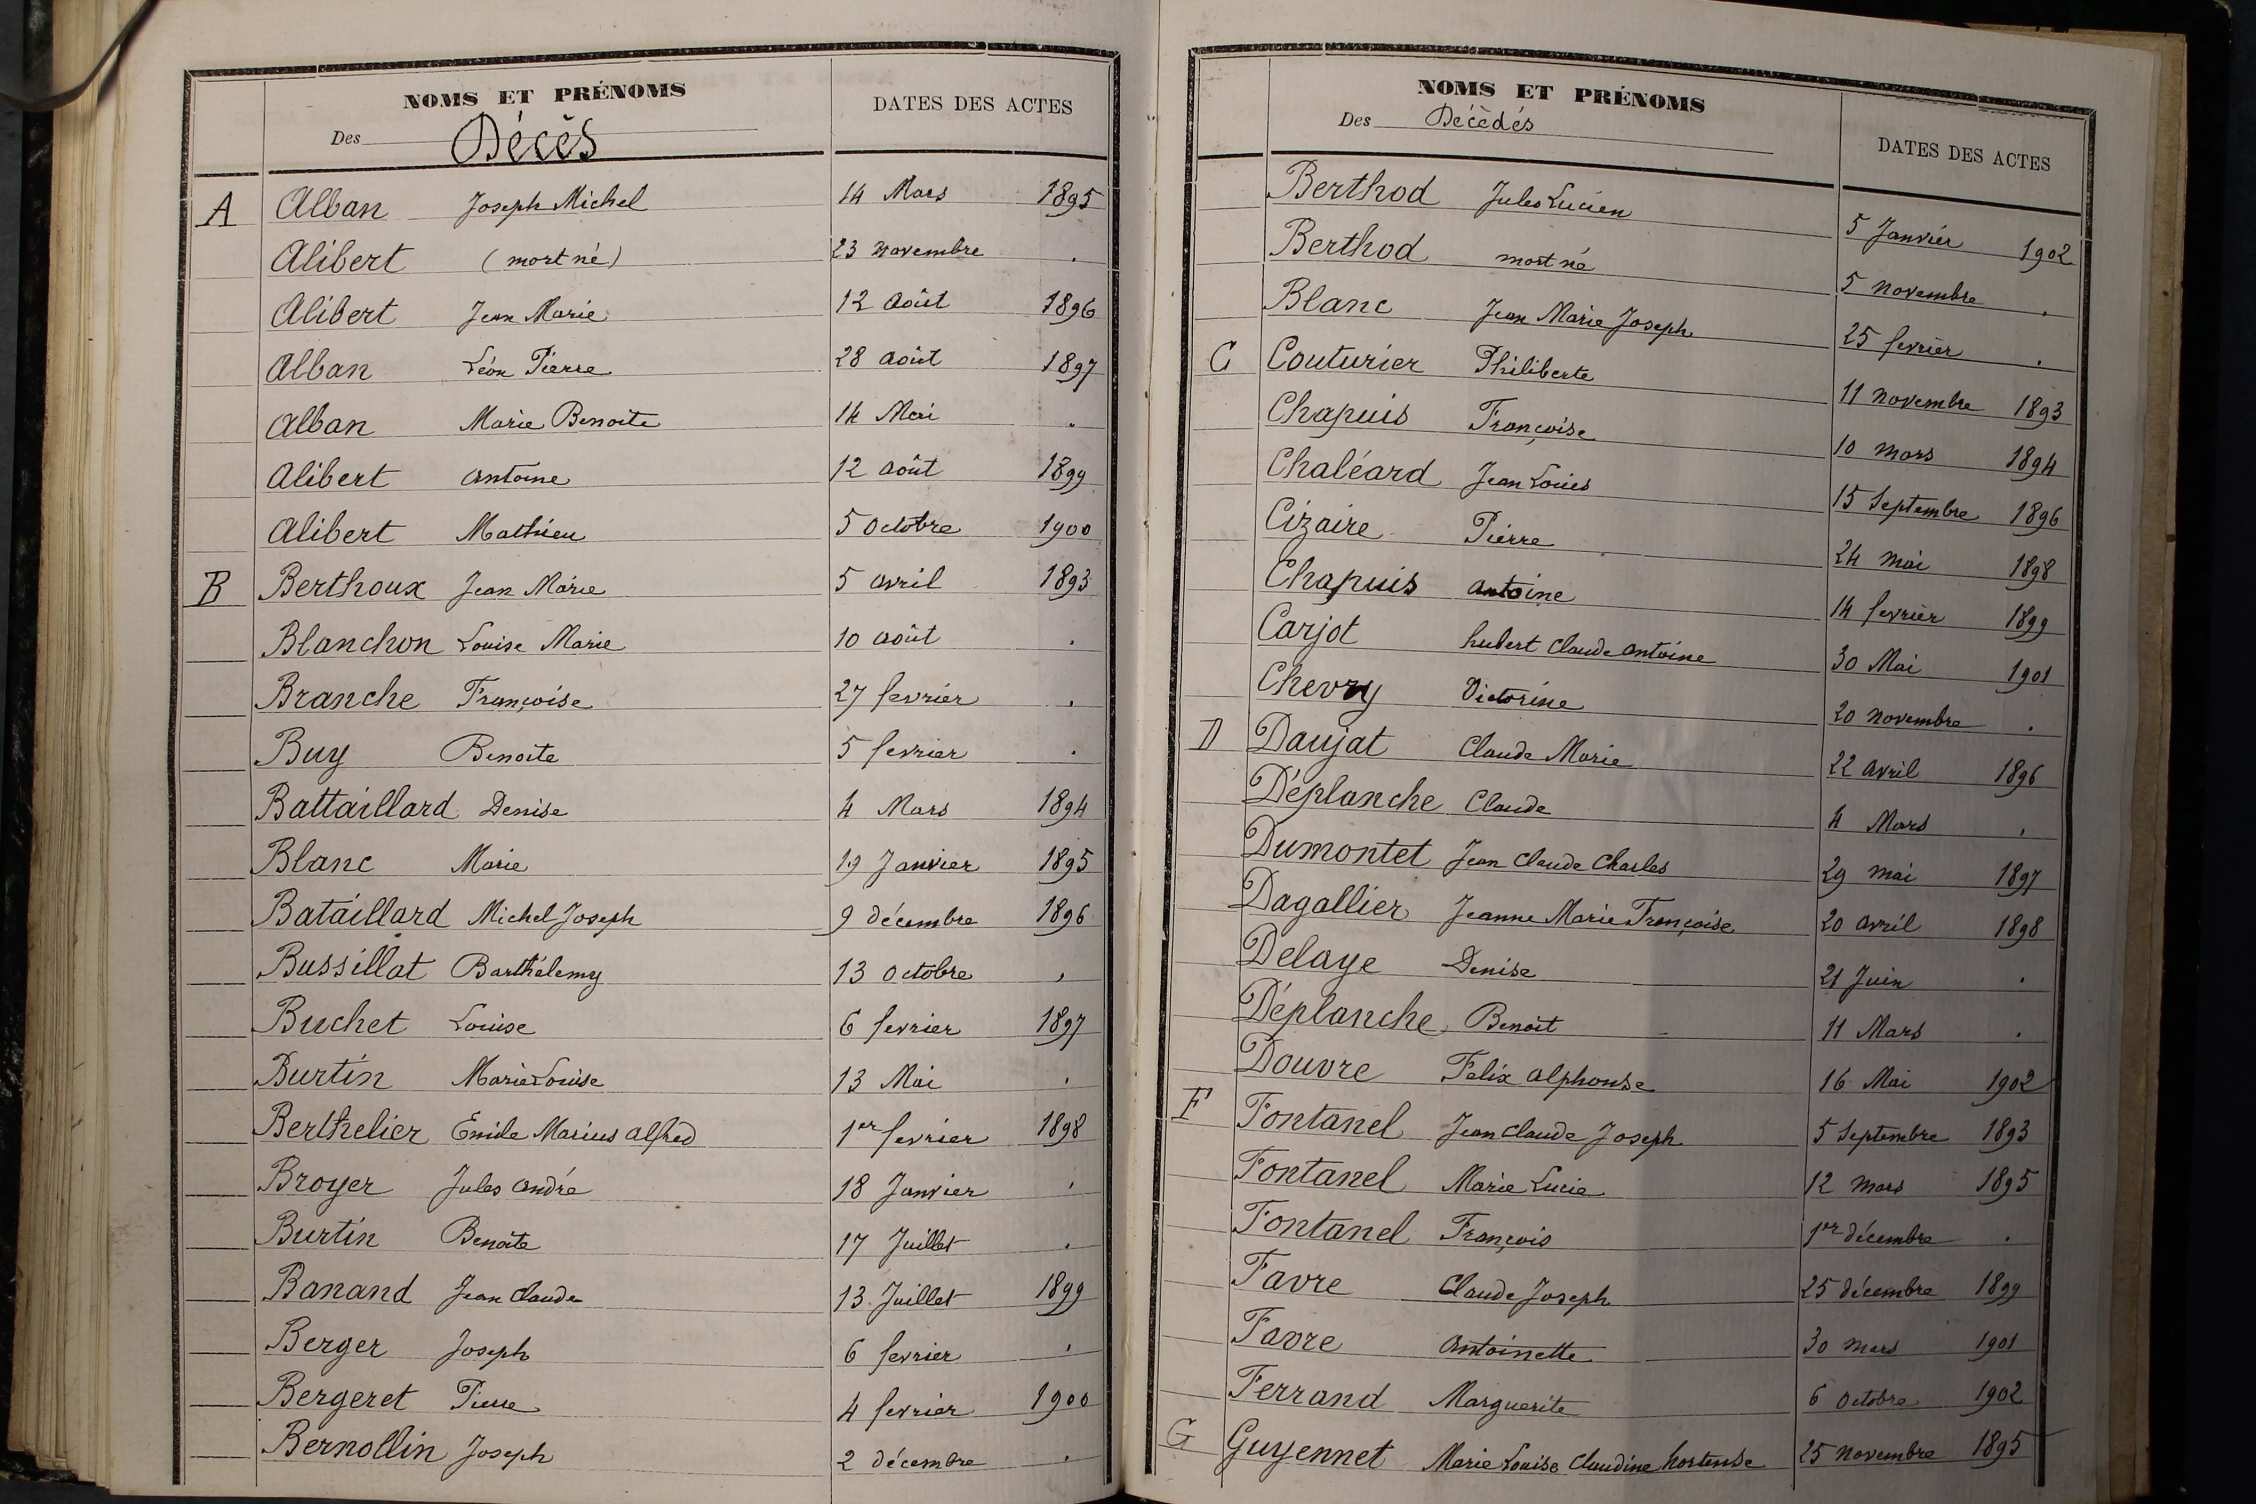 NOMS ET PRÉNOMS
DATES DES ACTES
Des Décès
A Alban Joseph Michel 14 Mars 1895
Alibert (mort né) 23 novembre .
Alibert Jean Marie 12 Août 1896
Alban Léon Pierre 28 août 1897
Alban Marie Benoite 14 Mai .
Alibert Antoine 12 août 1899
Alibert Mathieu 5 Octobre 1900
B Berthoux Jean Marie 5 avril 1893
Blanchon Louise Marie 10 août .
Branche Françoise 27 fevrier .
Buy Benoite 5 fevrier .
Battaillard Denise 4 Mars 1894
Blanc Marie 19 Janvier 1895
Bataillard Michel Joseph 9 décembre 1896
Bussillat Barthélemy 13 octobre .
Buchet Louise 6 fevrier 1897
Burtin Marie Louise 13 Mai .
Berthelier Emile Marius Alfred 1er fevrier 1898
Broyer Jules André 18 Janvier .
Burtin Benoite 17 Juillet .
Banand Jean Claude 13 Juillet 1899
Berger Joseph 6 fevrier .
Bergeret Pierre 4 fevrier 1900
Bernollin Joseph 2 décembre .
NOMS ET PRÉNOMS
Des Décèdés
DATES DES ACTES
Berthod Jules Lucien 5 Janvier 1902
Berthod mort né 5 novembre .
Blanc Jean Marie Joseph 25 fevrier .
C Couturier Philiberte 11 novembre 1893
Chapuis Françoise 10 mars 1894
Chaléard Jean Louis 15 Septembre 1896
Cizaire Pierre 24 mai 1898
Chapuis Antoine 14 fevrier 1899
Carjot hubert Claude Antoine 30 Mai 1901
Chevry Victorine 20 novembre .
D Daujat Claude Marie 22 avril 1896
Déplanche Claude 4 Mars .
Dumontet Jean Claude Charles 29 mai 1897
Dagallier Jeanne Marie Françoise 20 avril 1898
Delaye Denise 21 Juin .
Déplanche Benoit 11 Mars .
Douvre Felix Alphonse 16 Mai 1902
F Fontanel Jean Claude Joseph 5 Septembre 1893
Fontanel Marie Lucie 12 mars 1895
Fontanel François 1er décembre .
Favre Claude Joseph 25 décembre 1899
Favre Antoinette 30 mars 1901
Ferrand Marguerite 6 Octobre 1902
G Guyennet Marie Louise Claudine hortense 25 novembre 1895